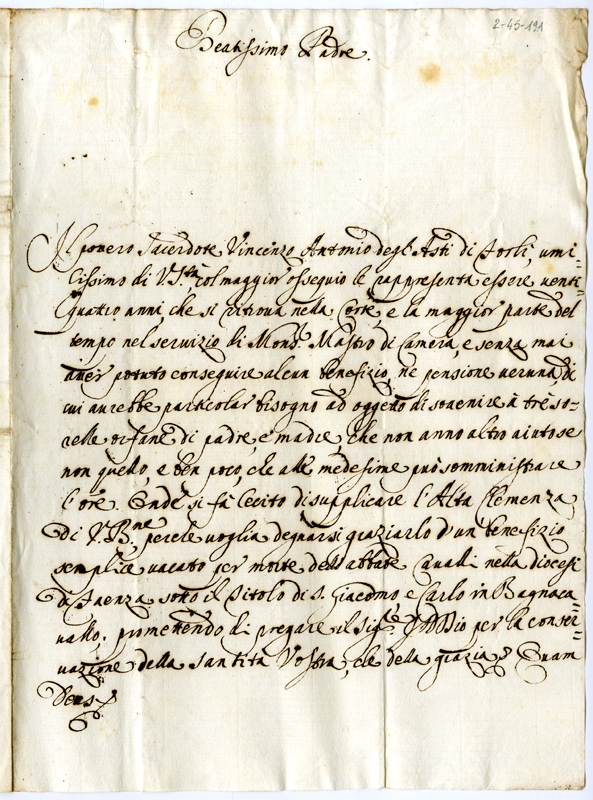 2-45-191
Beatissimo Padre.
Il povero Sacerdote Vincenzo Antonio degl'Asti di Forlì, umi=
lissimo di V. Stà col maggior ossequio le rappresenta essere venti=
quattro anni, che si ritrova nella Corte, e la maggior parte del
tempo nel servizio di Monsr. Mastro di Camera, e senza mai
aver potuto conseguire alcun benefizio, nè pensione veruna, di
cui aurebbe particolar bisogno ad oggetto di sovenire à trè so=
relle orfane di padre, e madre, che non anno altro aiuto se
non quello, e ben poco, che alle medesime può somministrare
l'Ore. Onde si fà lecito di supplicare l'Alta Clemenza
di V. Bne. perche voglia degnarsi graziarlo d'un benefizio
semplice vacato per morte dell'abbate Cavalli nella diocesi
di Faenza sotto il titolo di S. Giacomo e Carlo in Bagnaca=
vallo; promettendo di pregare il Sigre. Iddio per la conser=
vazione della Santità Vostra, che della grazia &c. Quam
Deus &c.